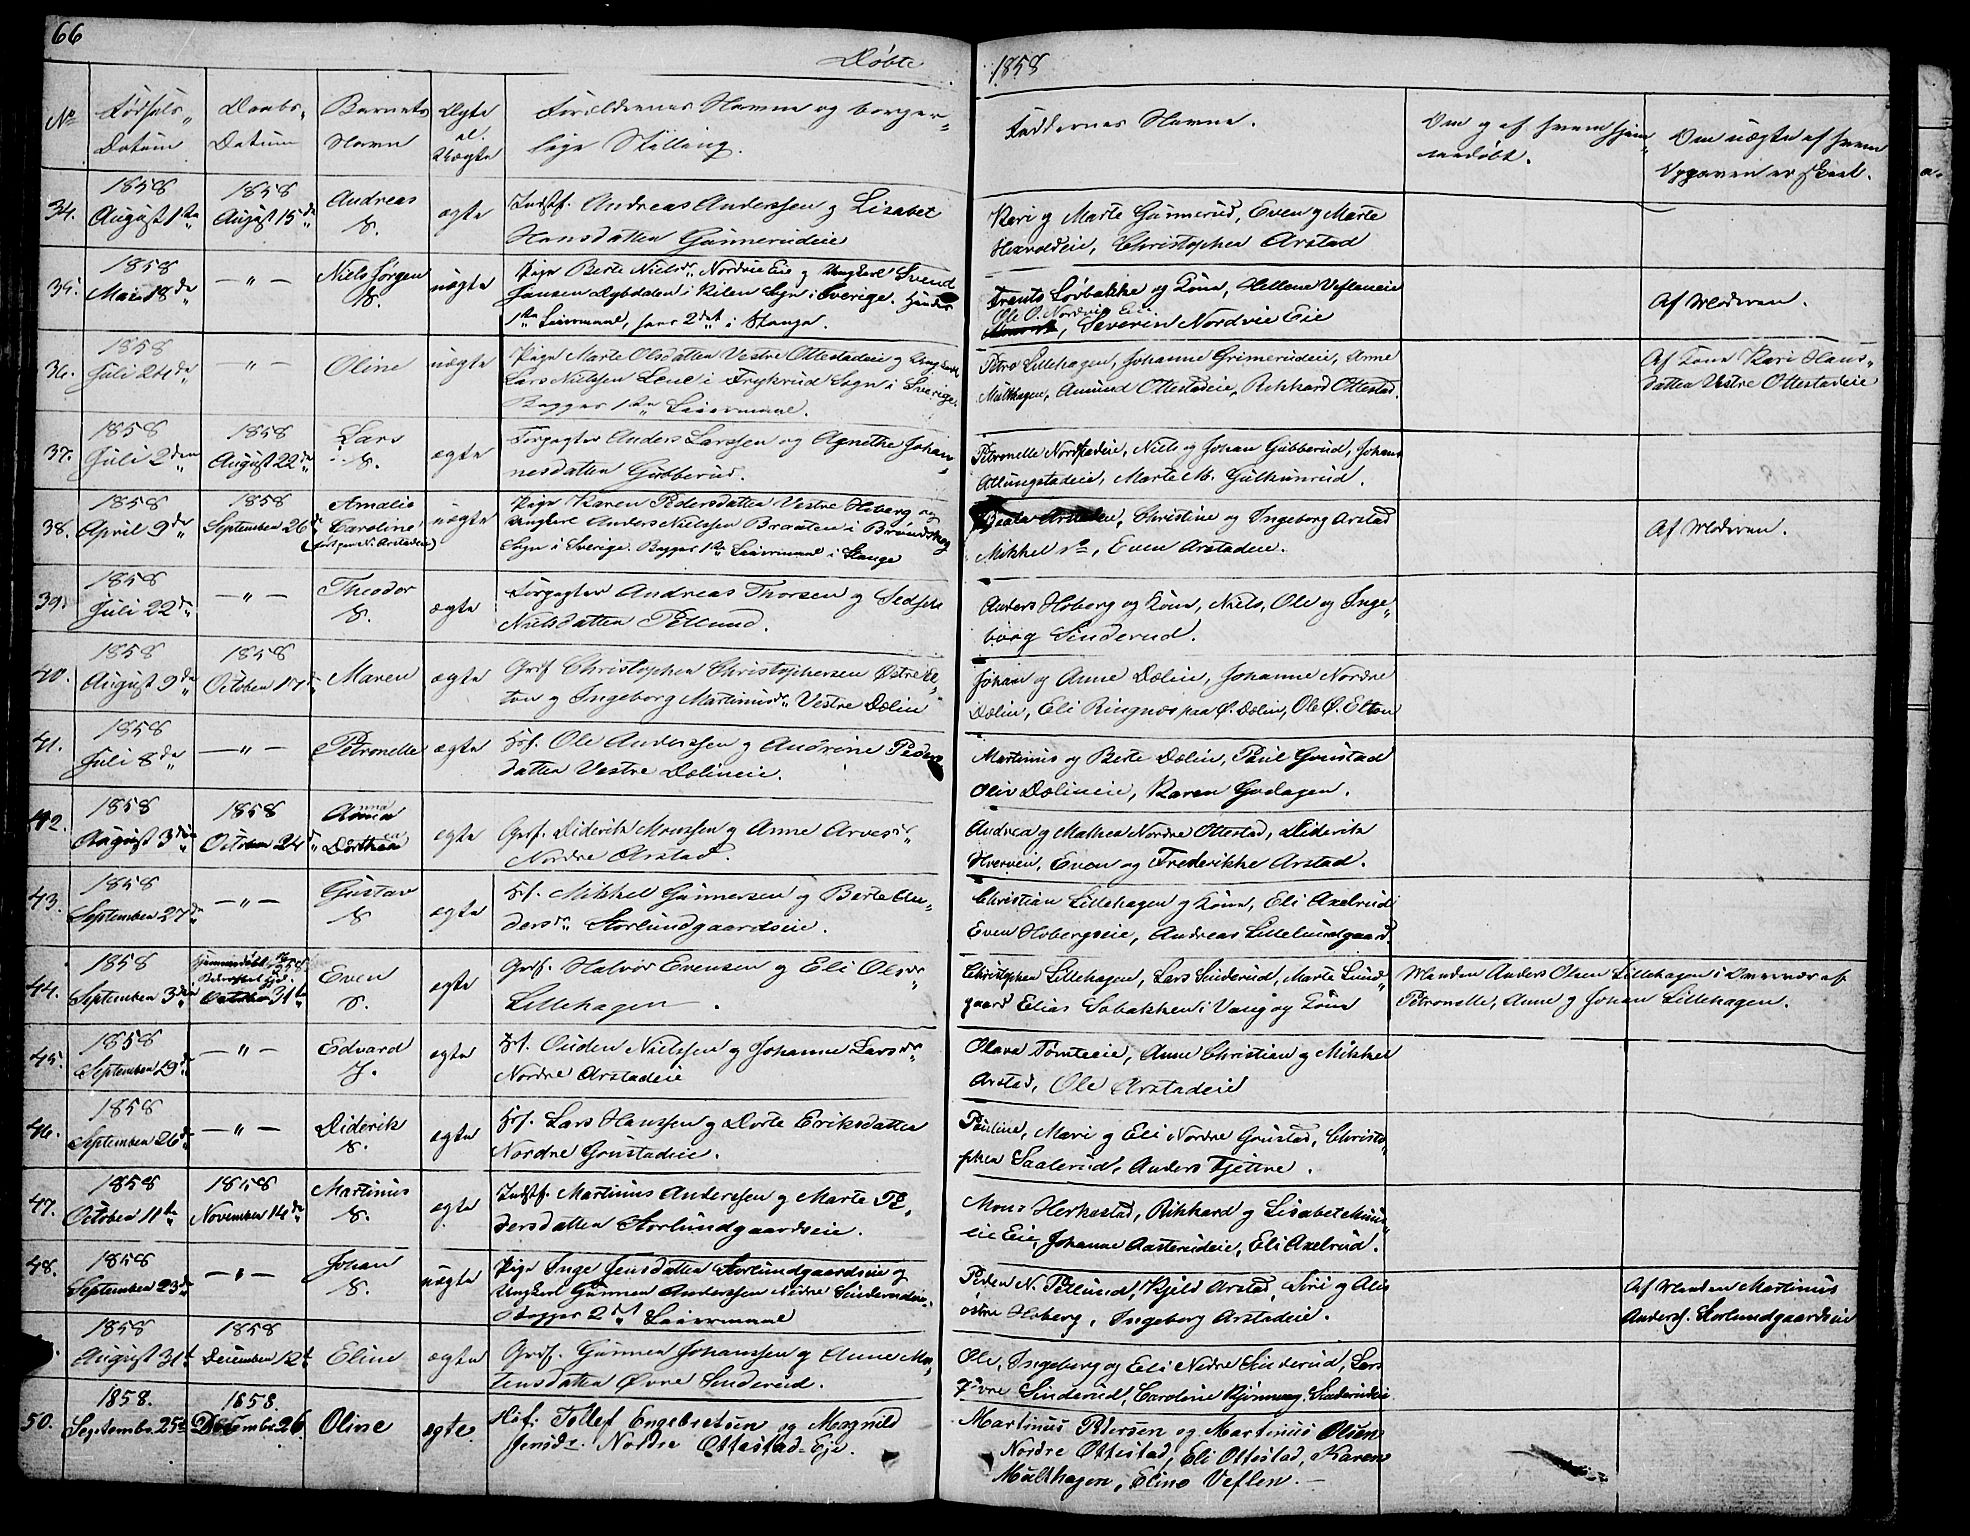 66
Døbte
1858
No
Fødsels-
Datum
Daabs-
Datum
Barnets
Navn
Ægte
el.
Uægte
Forældrenes Navne og borger-
lige Stilling.
Faddernes Navne.
Om og af hvem hjem-
medøbt.
Om uægte af hvem
Opgaven er skeet.
34.
1858
August 1ste
1858
August 15de
Andreas
ægte
Indst. Andreas Anderssen og Lisabet
Hansdatter Gunnerudeie
Kari og Marte Gunnerud, Even og Marte
Christopher Arstad
35.
1858
Mai 18de
— " —
Niels Jørgen
uægte
Pige Berte Nielsdr Nordvie Eie og Ungkarl Svend
Jansen i Kilen Sogn i Sverige. Hendes
1ste Leiermaal, hans 2det i Stange.
Frants Løvbakke og Kone, Hellene Vefleneie
Ole O. Nordvie Eie.
Severin Nordvie Eie
Af Moderen.
36.
1858
Juli 24de
— " —
Oline
uægte
Pige Marte Olsdatter Vestre Ottestadeie og Ungkarl
Lars Nielssen Lene i Frykerud Sogn i Sverige.
Begges 1ste Leiermaal.
Petra Lillehagen, Johanne Grimerudeie, Arne
Multhagen, Amund Ottestadeie, Rikhard Ottestad.
Af Kone Kari Hans-
datter Vestre Ottestadeie
37.
1858
Juli 2den
1858
August 22de
Lars
ægte
Forpagter Anders Larssen og Agnethe Johan-
nesdatter Gubberud.
Petronelle Nordstadeie, Niels og Johan Gubberud, Johans
Atlungstadeie, Marte M. Gulhunrud.
38.
1858
April 9de
1858
September 26de
Amalie
Caroline
uægte
Pige Karen Pedersdatter Vestre Hoberg og
Ungkarl Anders Nielssen Braaten i Brunskog
Sogn i Sverige. Begges 1ste Leiermaal i Stange
Beate Arstadeie, Christine og Ingeborg Arstad
Mikkel Even Arstadeie.
Af Moderen.
39.
1858
Juli 22de
— " —
Theodor
ægte
Forpagter Andreas Thorsen og Sedsele
Nielsdatter Pellund.
Anders Hoberg og Kone, Niels, Ole og Inge-
borg Sinderud.
40.
1858
August 9de
1858
October 17de
Maren
ægte
Grdf Christopher Christophersen Østre El-
ton og Ingeborg Martinusdr Vestre Dælin
Johan og Anne Dælin, Johanne Nordre
Dælin, Eli Ringnes paa Ø. Dælin, Ole Ø. Elton
41.
1858
Juli 8de
— " —
Petronelle
ægte
Hf. Ole Anderssen og Andrine Peders-
datter Vestre Dælineie.
Martinus og Berte Dælin, Paul Gonstad
Oliv Dælineie, Karen Godagen.
42.
1858
August 3die
1858
October 24de
Anna
Dorthea
ægte
Grdf. Diderik Monssen og Anne Arvesdr
Nordre Arstad.
Andrea og Mathea Nordre Ottestad, Diderik
Hverven, Even og Frederikke Arstad.
43.
1858
September 27de
— " —
Gustav
ægte
Hf. Mikkel Gunnersen og Berte An-
dersdr Storlundgaardseie.
Christian Lillehagen og Kone, Eli Axelrud
Even Hobergseie, Andreas Lillelundgaard.
44.
1858
September 3die
October 31te
Even
ægte
Grdf. Halvor Evensen og Eli Olsdr
Lillehagen.
Christopher Lillehagen, Lars Sinderud, Marte Lund-
gaard Elias Sobakken i Vang og Kone
Manden Anders Olsen Lillehagen i Overvær af
Petronelle, Anne og Johan Lillehagen.
45.
1858
September 19de
— " —
Edvard
ægte
Hf. Ouden Nielssen og Johanne Larsdr
Nordre Arstadeie
Olava Tomteeie, Anne Christian og Mikkel
Arstad, Ole Arstadeie
46.
1858
September 26de
— " —
Diderik
ægte
Hf. Lars Hanssen og Dorte Eriksdatter
Nordre Gonstadeie.
Pauline, Mari og Eli Nordre Gonstad, Christo-
pher Saalerud, Anders Tjetne.
47.
1858
October 11te
1858
November 14de
Martinus
ægte
Indstf. Martinus Anderssen og Marte Pe-
dersdatter Storlundgaardseie.
Mons Herkestad, Rikhard og Lisabet
Eie, Johanne Aasterudeie, Eli Axelrud.
48.
1858
September 23de
— " —
Johan
uægte
Pige Inge Jensdatter Storlundgaardseie og
Ungkarl Gunner Anderssen Nedre Sinderudeie.
Begges 2det Leiermaal
Peder N. Pellund, Kjeld Arstad, Siri og Alis
østre Hoberg, Ingeborg Arstadeie.
Af Manden Martinus
Anders. Storlundgaardseie
1858
August 31te
1858
December 12te
Eline
ægte
Grdf. Gunner Johanssen og Anne Mor-
tensdatter Øvre Sinderud.
Ole, Ingeborg og Eli Nedre Sinderud, Lars
Øvre Sinderud, Caroline Sinderudeie
50.
1858.
Septembr. 25de
1858.
Decembr. 26
Oline
ægte.
Hsf: Tollef Engebretsen og Magnild
Jensdr. Nordre Ottestad-Eje.
Martinus Pedersen og Martinus Olsen
Nordre Ottestad, Eli Ottestad, Karen
Multhagen, Eline Veflen. —